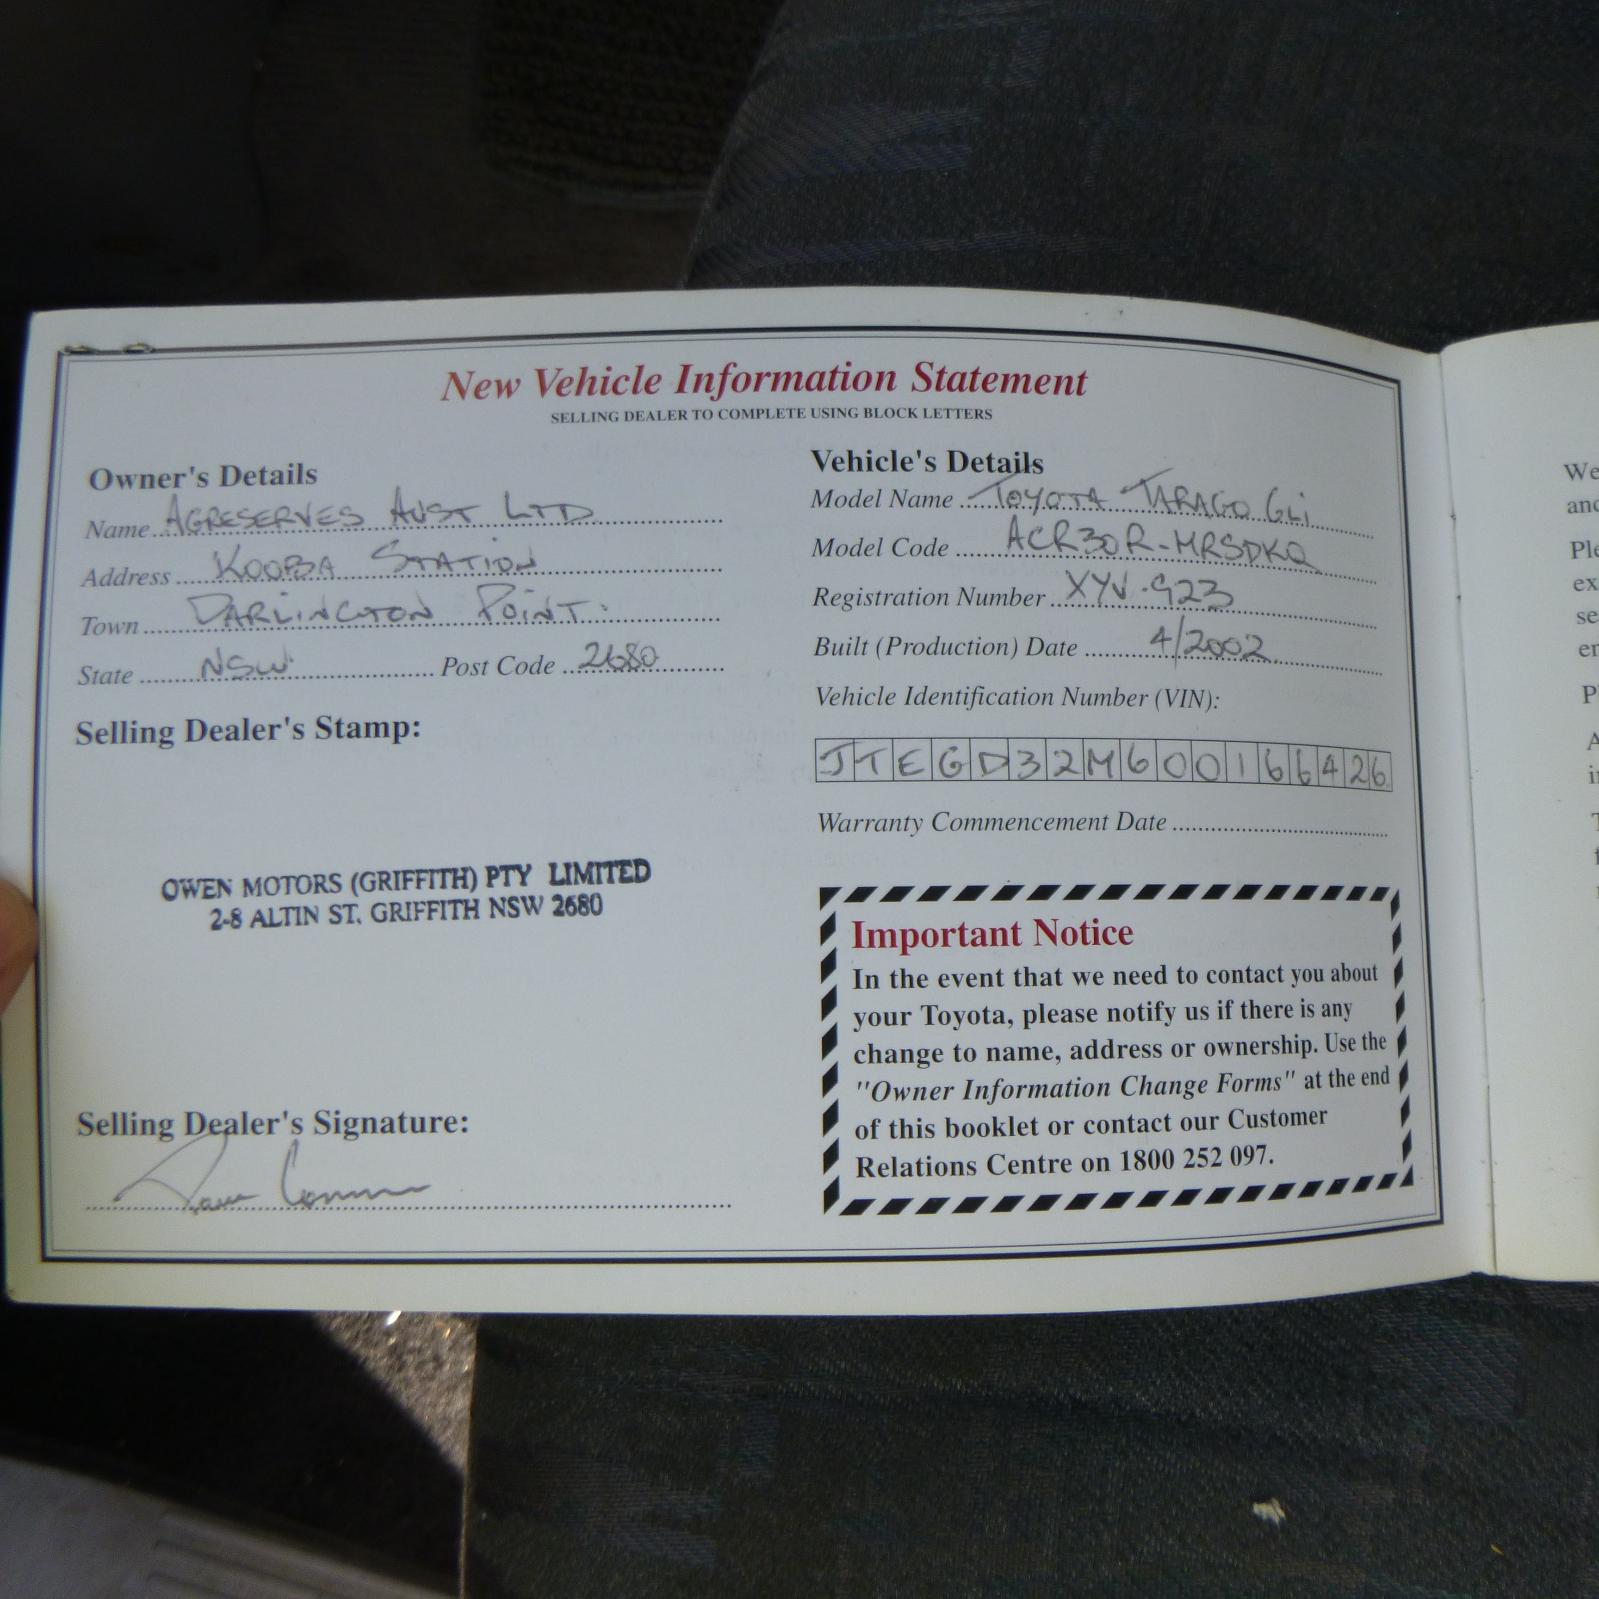 New Vehicle Information Statement
SELLING DEALER TO COMPLETE USING BLOCK LETTERS
Owner's Details
Name AGRESERVES AUST LTD
Address KOOBA STATION
Town DARLINGTON POINT.
State NSW Post Code 2680
Selling Dealer's Stamp:
OWEN MOTORS (GRIFFITH) PTY LIMITED
2-8 ALTIN ST. GRIFFITH NSW 2680
Selling Dealer's Signature:
Vehicle's Details
Model Name TOYOTA TARAGO GLi
Model Code ACR30R-MRSDKQ
Registration Number XYV-923
Built (Production) Date 4/2002
Vehicle Identification Number (VIN):
JTEGD32M600166426
Warranty Commencement Date
Important Notice
In the event that we need to contact you about
your Toyota, please notify us if there is any
change to name, address or ownership. Use the
"Owner Information Change Forms" at the end
of this booklet or contact our Customer
Relations Centre on 1800 252 097.
We